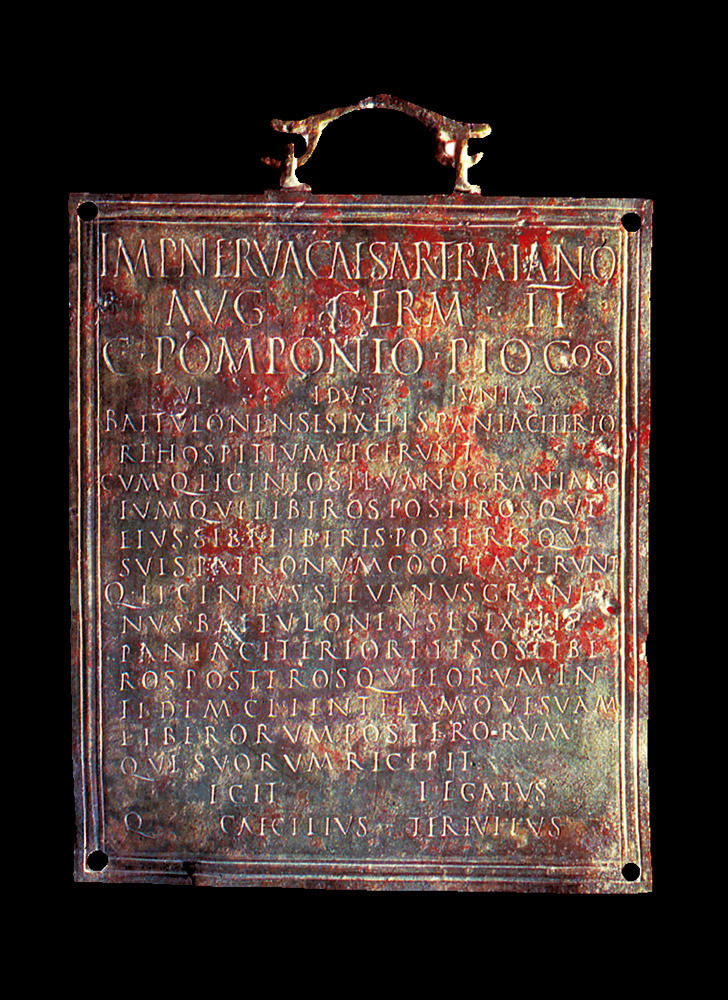 IMP NERVA CAESAR TRAIANO
AVG GERM · II
C · POMPONIO · PIO COS
VI IDVS IVNIAS
BAITVLONENSES EX HISPANIA CITERIO
RE HOSPITIVM FECERVNT
CVM Q LICINIO SILVANO GRANIANO
EVMQVE LIBEROS POSTEROSQVE
EIVS SIBI LIBERIS POSTERISQVE
SVIS PATRONVM COOPTAVERVNT
Q · LICINIVS SILVANVS GRANIA
NVS · BAETVLONENSES EX HIS
PANIA CITERIORE IPSOS LIBE
ROS POSTEROSQVE EORVM IN
FIDEM CLIENTELAMQVE SVAM
LIBERORVM POSTERO·RVM
QVE SVORVM RECEPIT
EGIT LEGATVS
Q CAECILIVS TERTVLLVS